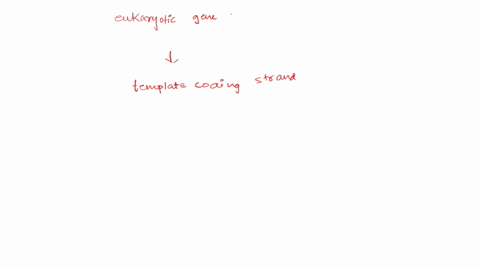 eukaryotic gene
template coding strand